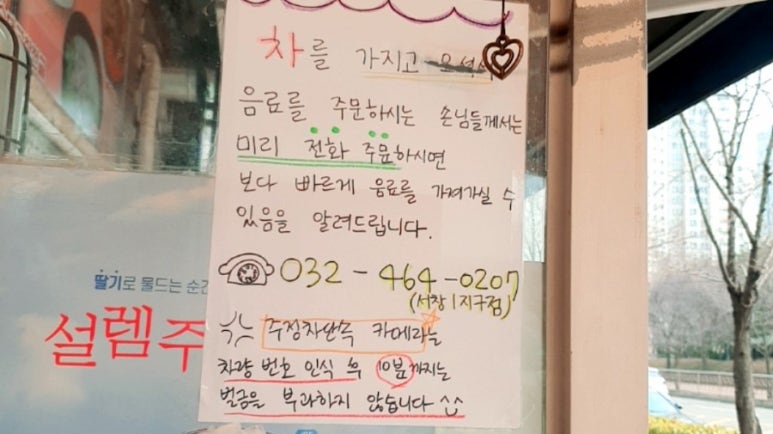 차를 가지고 오셔서
음료를 주문하시는 손님들께서는
미리 전화 주문하시면
보다 빠르게 음료를 가져가실 수
있음을 알려드립니다.
032-464-0207
(서창1지구점)
주정차단속 카메라는
차량 번호 인식 후 10분까지는
벌금을 부과하지 않습니다 ^^
딸기로 물드는 순간
설렘주